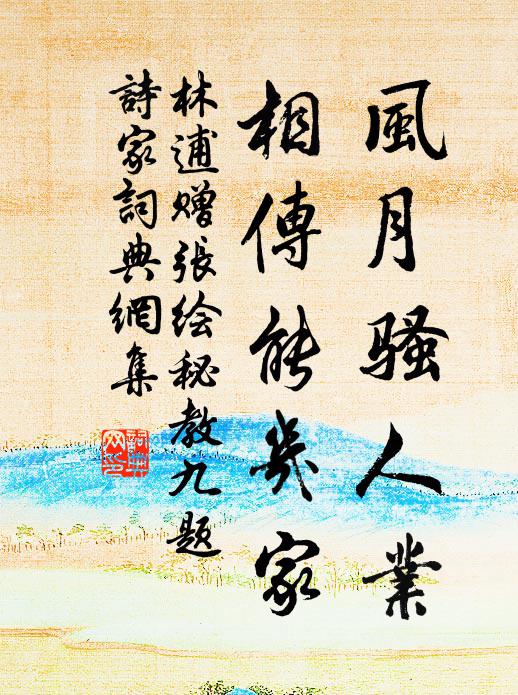 風月騷人業
相傳能幾家
林逋贈張绘秘教九题
詩家詞典網集